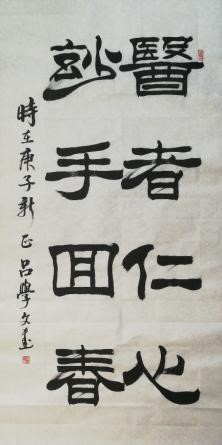 醫者仁心
妙手回春
時在庚子新正呂學文書